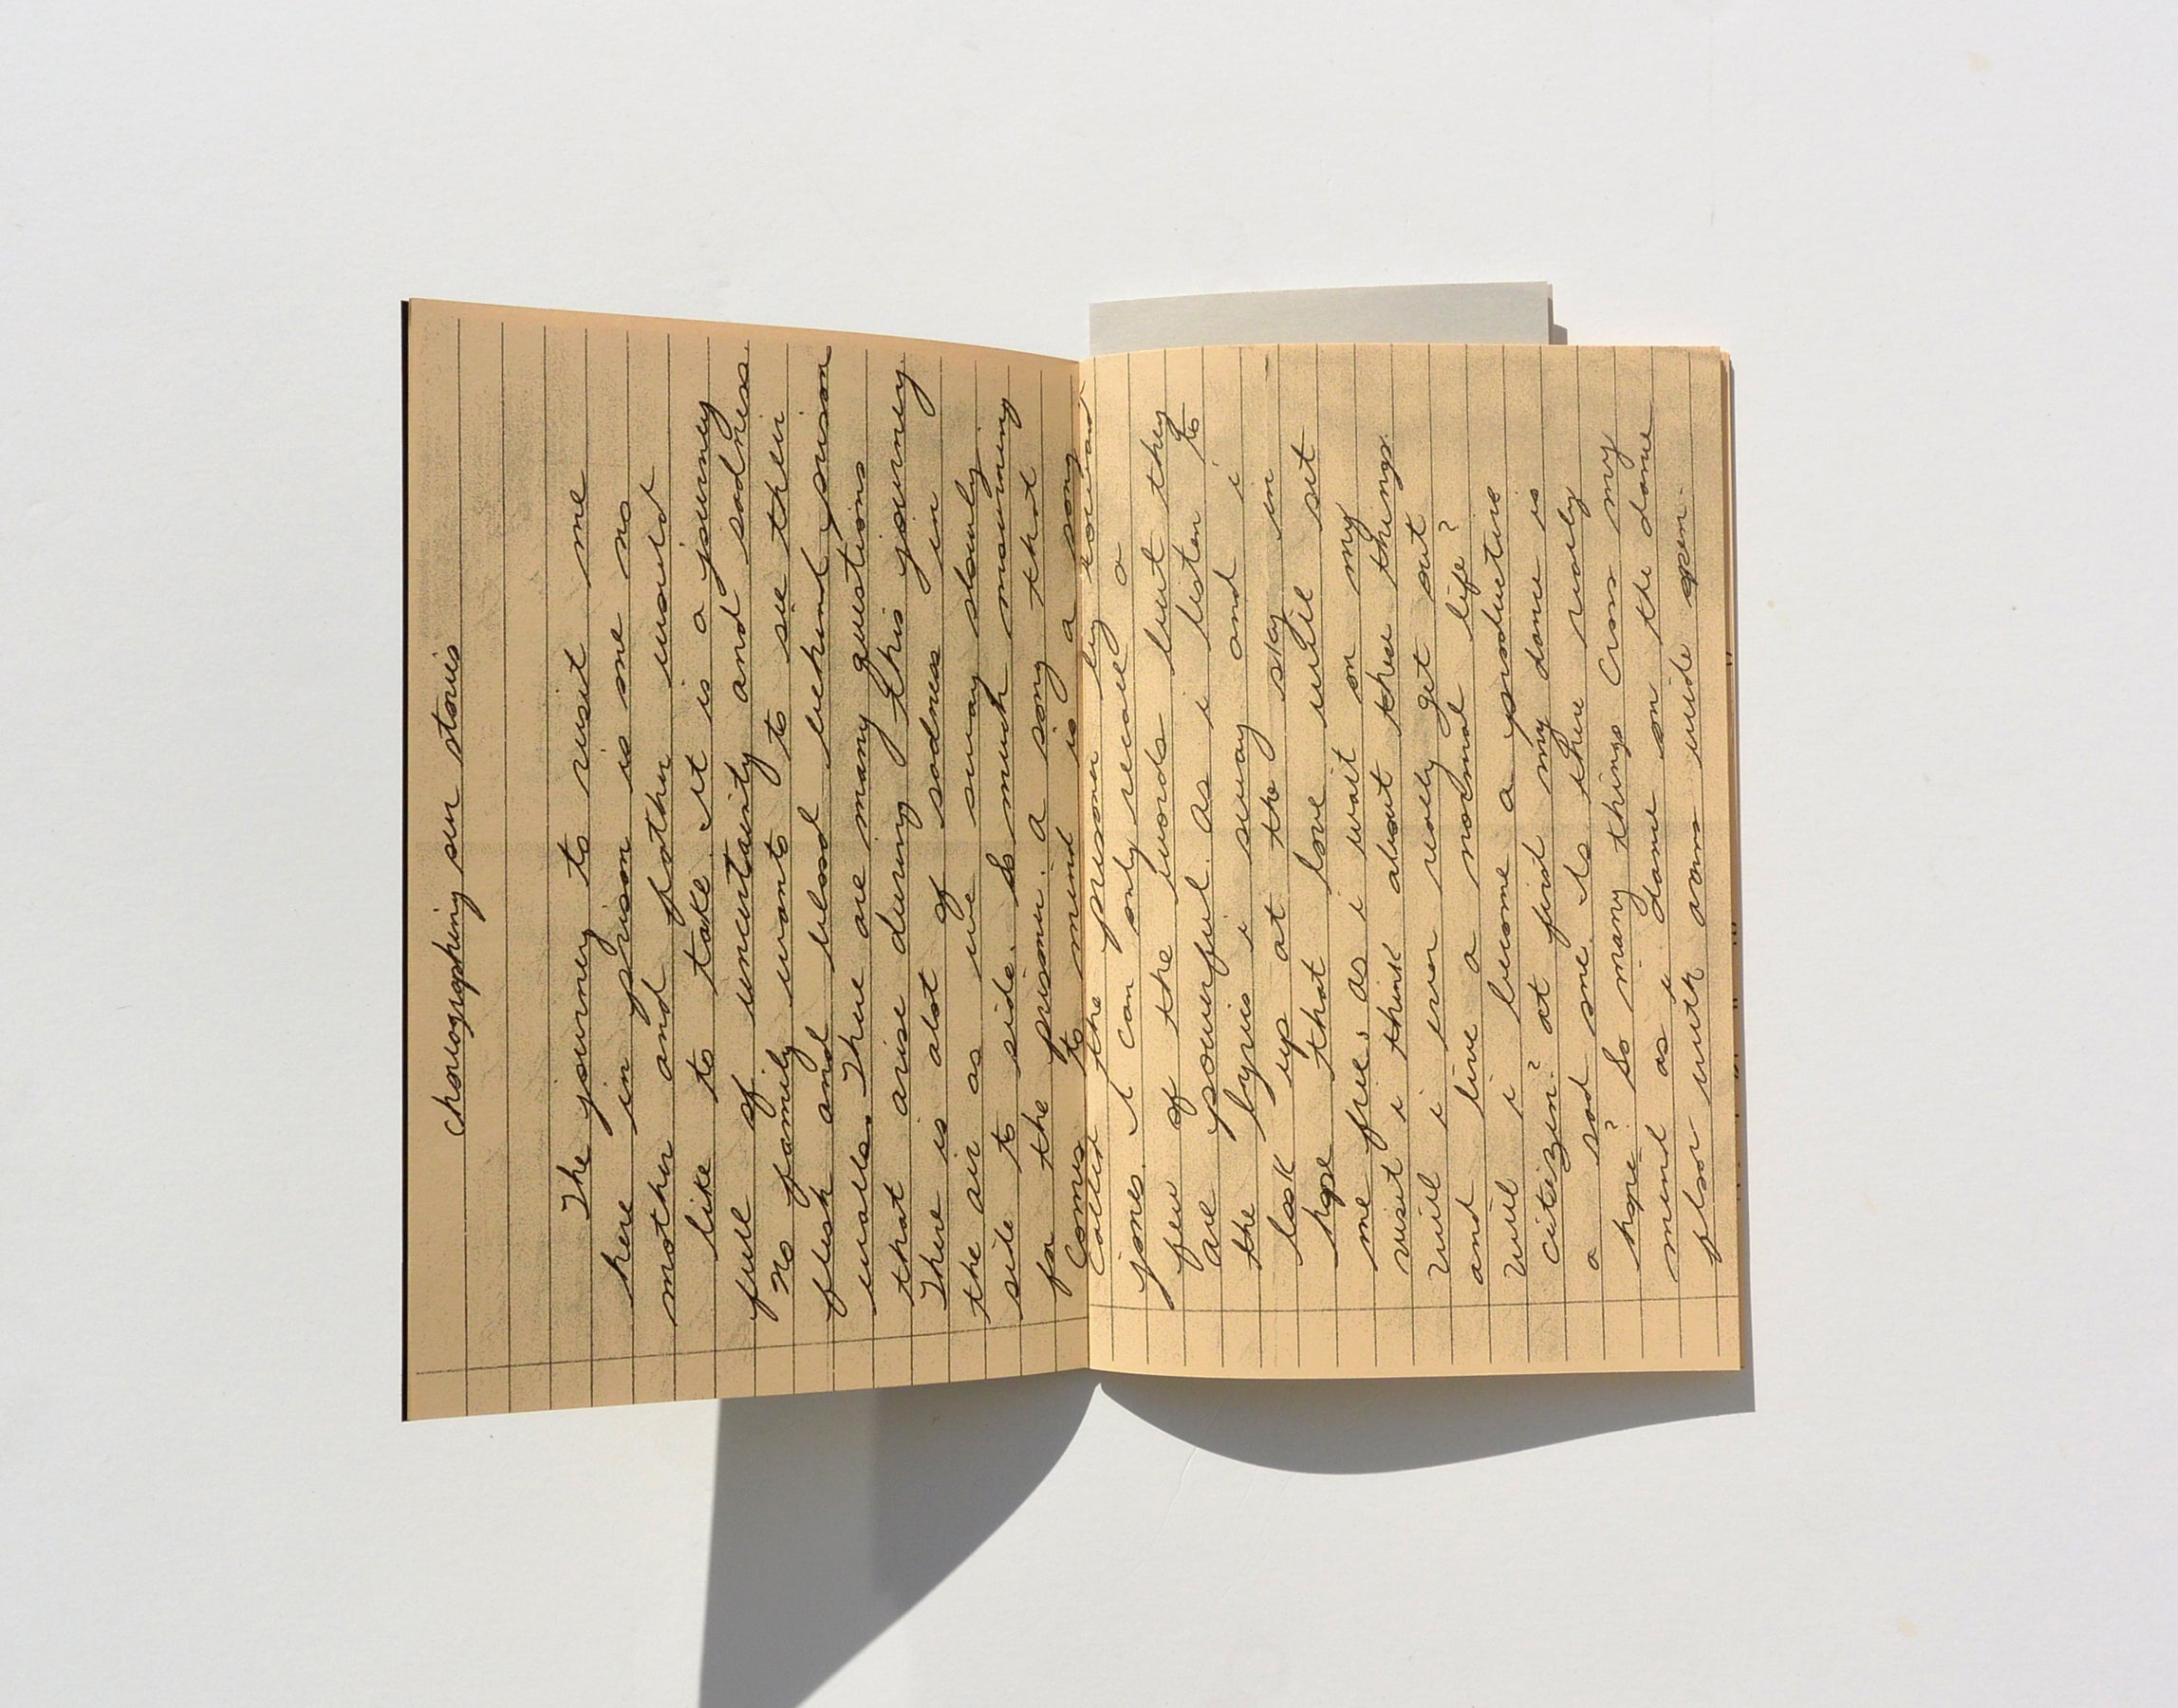 Choreographing our stories
The journey to visit me
here in prison is one no
mother and father would
like to take. It is a journey
full of uncertainty and sadness.
No family wants to see their
flesh and blood behind prison
walls. There are many questions
that arise during this journey.
There is alot of sadness in
the air as we sway slowly
side to side. So much mourning
for the prisoner. A song that
Comes to mind is a song
called the prisoner by edward
jones. I can only recall a
few of the words but they
are powerful. As i listen to
the lyrics i sway and i
look up at the sky in
hope that love will set
me free. As i wait on my
visit i think about these things.
Will i ever really get out
and live a normal life?
Will i become a productive
citizen? at first my dance is
a sad one. Is there really
hope? So many things Cross my
mind as i dance on the dance
floor with arms wide open.